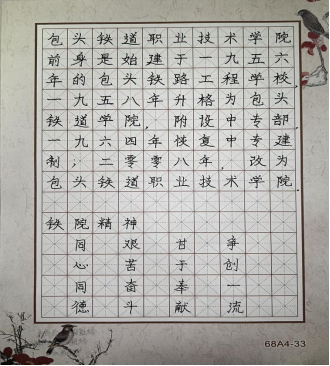 包头铁道职业技术学院
前身是始建于一九五六
年的包头铁路工程学校,
一九五八年升格为包头
铁道学院,附设中专部,
一九六四年恢复中专建
制;二零零八年,改为
包头铁道职业技术学院.
铁院精神
同心同德
艰苦奋斗
甘于奉献
争创一流
68A4-33